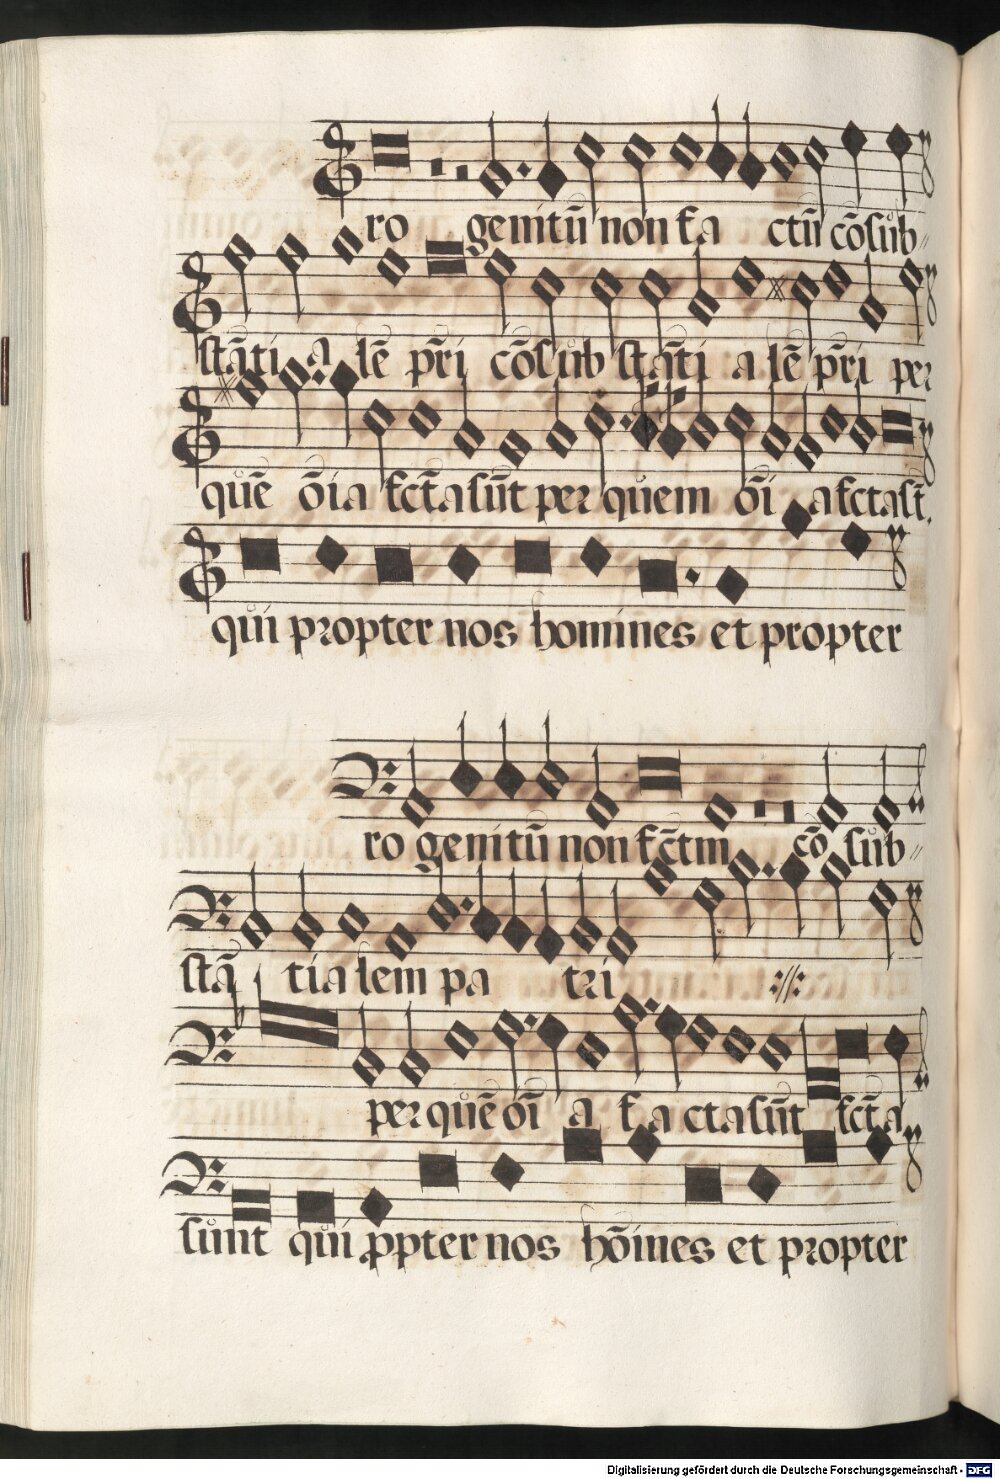 ro genitū non fa ctū cōsub〃
stāti a lē pr̄i cōsub stāti a lē pr̄i per
quē ōia fct̄a sūt per quem ōi a fcta st̄.
qui propter nos homines et propter
ro genitū non fct̄m cō sub〃
stā tia lem pa tri ://:
per quē oī a fa cta sūt fct̄a
sunt qui ꝓpter nos hōines et propter
Digitalisierung gefördert durch die Deutsche Forschungsgemeinschaft - DFG